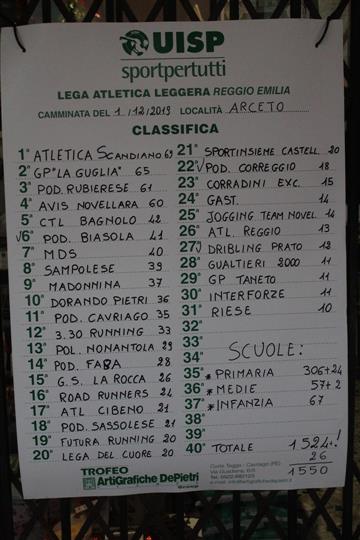 UISP
sportpertutti
LEGA ATLETICA LEGGERA REGGIO EMILIA
CAMMINATA DEL 1/12/2019 LOCALITÀ ARCETO
CLASSIFICA
1° ATLETICA SCANDIANO 69
2° GP "LA GUGLIA" 65
3° POD. RUBIERESE 61
4° AVIS NOVELLARA 60
5° CTL BAGNOLO 42
√6° POD. BIASOLA 41
7° MDS 40
8° SAMPOLESE 39
9° MADONNINA 37
10° DORANDO PIETRI 36
11° POD. CAVRIAGO 35
12° 3.30 RUNNING 33
13° POL. NONANTOLA 29
14° POD. FABA 28
15° G.S. LA ROCCA 26
16° ROAD RUNNERS 24
17° ATL CIBENO 21
18° POD. SASSOLESE 21
19° FUTURA RUNNING 20
20° LEGA DEL CUORE 20
21° SPORTINSIEME CASTELL. 20
22√ POD. CORREGGIO 18
23° CORRADINI EXC. 15
24° GAST. 14
25° JOGGING TEAM NOVEL. 14
26° ATL. REGGIO 13
27√ DRIBLING PRATO 12
28° GUALTIERI 2000 11
29° GP TANETO 11
30° INTERFORZE 11
31° RIESE 10
32°
33°
34° SCUOLE:
35° * PRIMARIA 306+24
36° * MEDIE 57+2
37° * INFANZIA 67
38°
39°
40° TOTALE 1524+!
26
1550
TROFEO
ArtiGrafiche DePietri